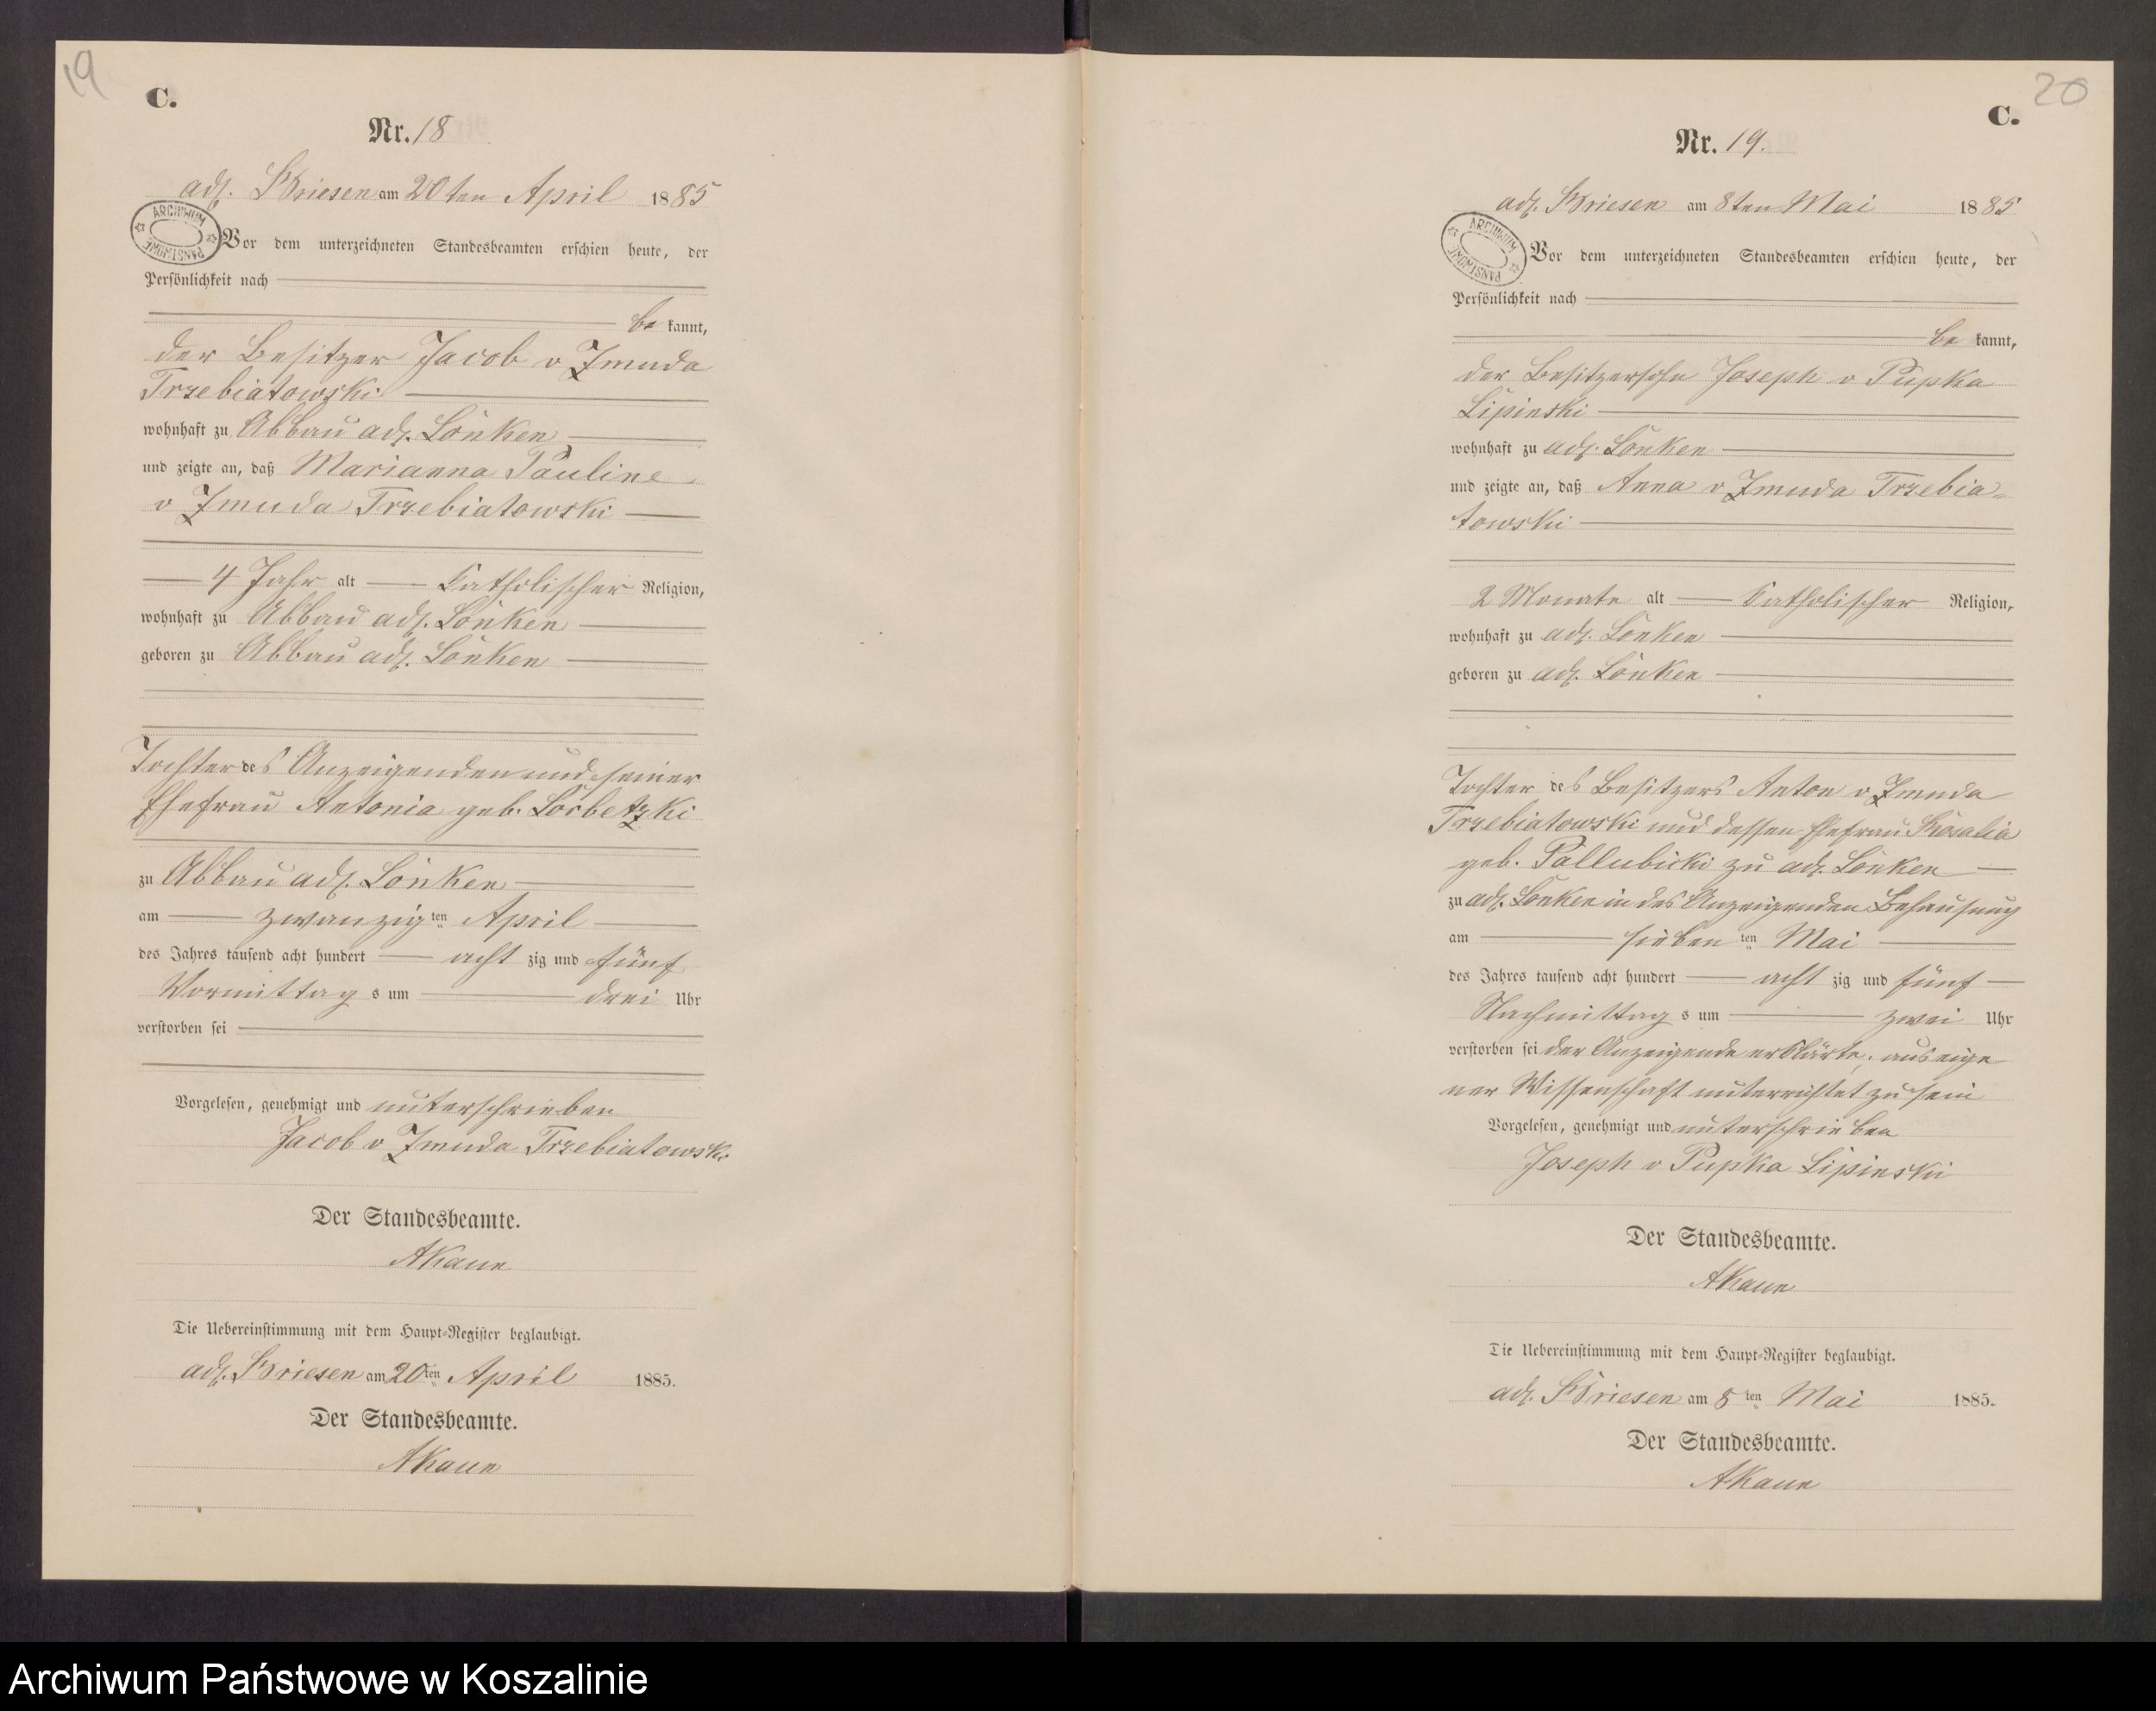 19
C.
Nr. 18
adl. Briesen am 20ten April 1885
ARCHIWUM PAŃSTWOWE
Vor dem unterzeichneten Standesbeamten erschien heute, der
Persönlichkeit nach
be kannt,
der Besitzer Jacob v Zmuda
Trzebiatowski
wohnhaft zu Abbau adl. Lonken
und zeigte an, daß Marianna Pauline
v Zmuda Trzebiatowski
4 Jahr alt katholischer Religion,
wohnhaft zu Abbau adl. Lonken
geboren zu Abbau adl. Lonken
Tochter des Anzeigenden und seiner
Ehefrau Antonia geb. Lorbetzki
zu Abbau adl. Lonken
am zwanzig ten April
des Jahres tausend acht hundert acht zig und fünf
Vormittag s um drei Uhr
verstorben sei
Vorgelesen, genehmigt und unterschrieben
Jacob v Zmuda Trzebiatowski
Der Standesbeamte.
AKaun
Die Uebereinstimmung mit dem Haupt-Register beglaubigt.
adl. Briesen am 20ten April 1885.
Der Standesbeamte.
AKaun
20
C.
Nr. 19.
adl. Briesen am 8ten Mai 1885
ARCHIWUM PAŃSTWOWE
Vor dem unterzeichneten Standesbeamten erschien heute, der
Persönlichkeit nach
be kannt,
der Besitzersohn Joseph v Pupka
Lipinski
wohnhaft zu adl. Lonken
und zeigte an, daß Anna v Zmuda Trzebia-
towski
2 Monate alt katholischer Religion,
wohnhaft zu adl. Lonken
geboren zu adl. Lonken
Tochter des Besitzers Anton v Zmuda
Trzebiatowski und dessen Ehefrau Rosalia
geb. Pallubicki zu adl. Lonken
zu adl. Lonken in des Anzeigenden Behausung
am sieben ten Mai
des Jahres tausend acht hundert acht zig und fünf
Nachmittag s um zwei Uhr
verstorben sei der Anzeigende erklärte, aus eige
ner Wissenschaft unterrichtet zu sein
Vorgelesen, genehmigt und unterschrieben
Joseph v Pupka Lipinski
Der Standesbeamte.
AKaun
Die Uebereinstimmung mit dem Haupt-Register beglaubigt.
adl. Briesen am 8 ten Mai 1885.
Der Standesbeamte.
AKaun
Archiwum Państwowe w Koszalinie